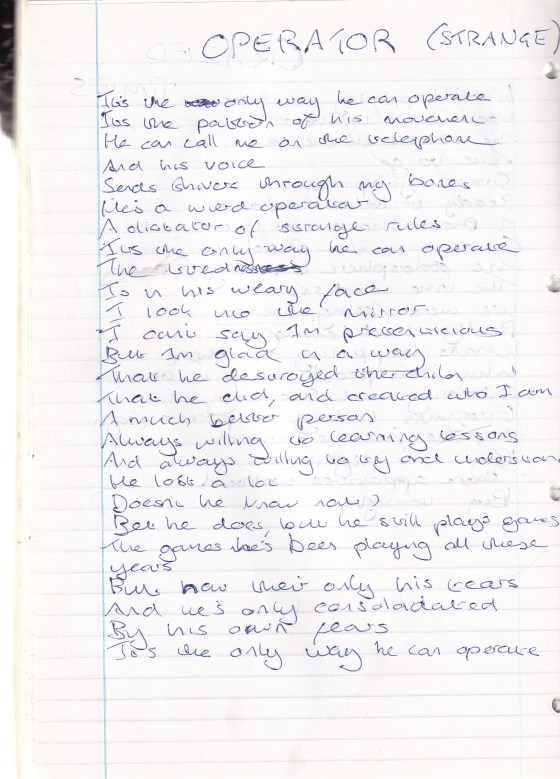 OPERATOR (STRANGE)
It's the only way he can operate
Its the pattern of his movement
He can call me on the telephone
And his voice
Sends shivers through my bones
He's a wierd operator
A dictator of strange rules
It's the only way he can operate
The tired
Is in his weary face
I look into the mirror
I can't say I'm pretentious
But I'm glad in a way
That he destroyed the child
That he did, and created who I am
A much better person
Always willing to learning lessons
And always willing to try and understand
He lost a lot
Doesn't he know now?
Bet he does, but he still plays games
The games he's been playing all these
years
But now their only his tears
And he's only consoladated
By his own fears
It's the only way he can operate